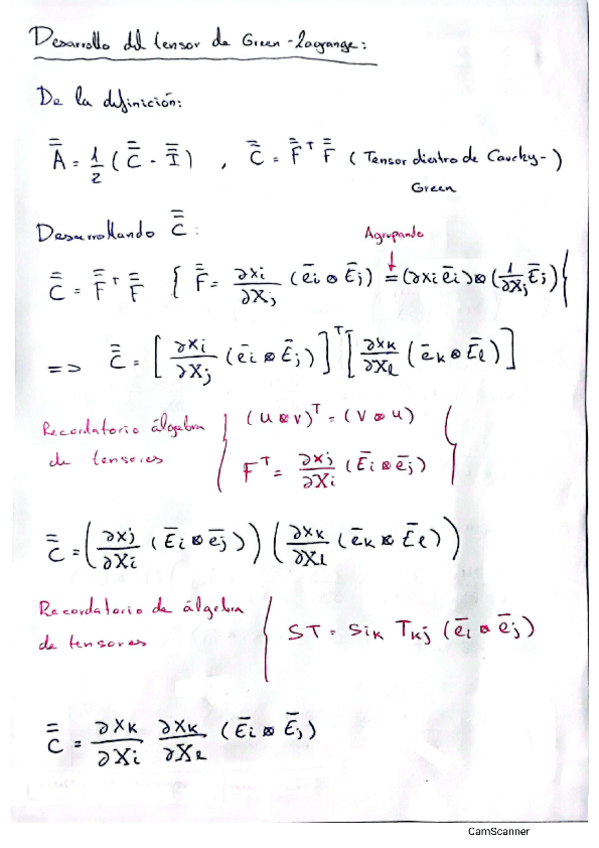 Desarrollo del tensor de Green-Lagrange:
De la definición:
A̿ = 1/2 (C̿ - I̿) , C̿ = F̿ᵀ F̿ (Tensor diestro de Cauchy-)
Green
Desarrollando C̿ :
Agrupando
C̿ = F̿ᵀ F̿ { F̿ = ∂xi/∂Xj (ēi ⊗ Ēj) = (∂xi ēi) ⊗ (1/∂Xj Ēj) {
=> C̿ = [ ∂xi/∂Xj (ēi ⊗ Ēj) ]ᵀ [ ∂xk/∂Xl (ēk ⊗ Ēl) ]
Recordatorio álgebra
de tensores
{ (u ⊗ v)ᵀ = (v ⊗ u)
Fᵀ = ∂xj/∂Xi (Ēi ⊗ ēj) {
C̿ = ( ∂xj/∂Xi (Ēi ⊗ ēj) ) ( ∂xk/∂Xl (ēk ⊗ Ēl) )
Recordatorio de álgebra
de tensores
{ ST = Sik Tkj (ēi ⊗ ēj)
C̿ = ∂xk/∂Xi ∂xk/∂Xl (Ēi ⊗ Ēj)
CamScanner